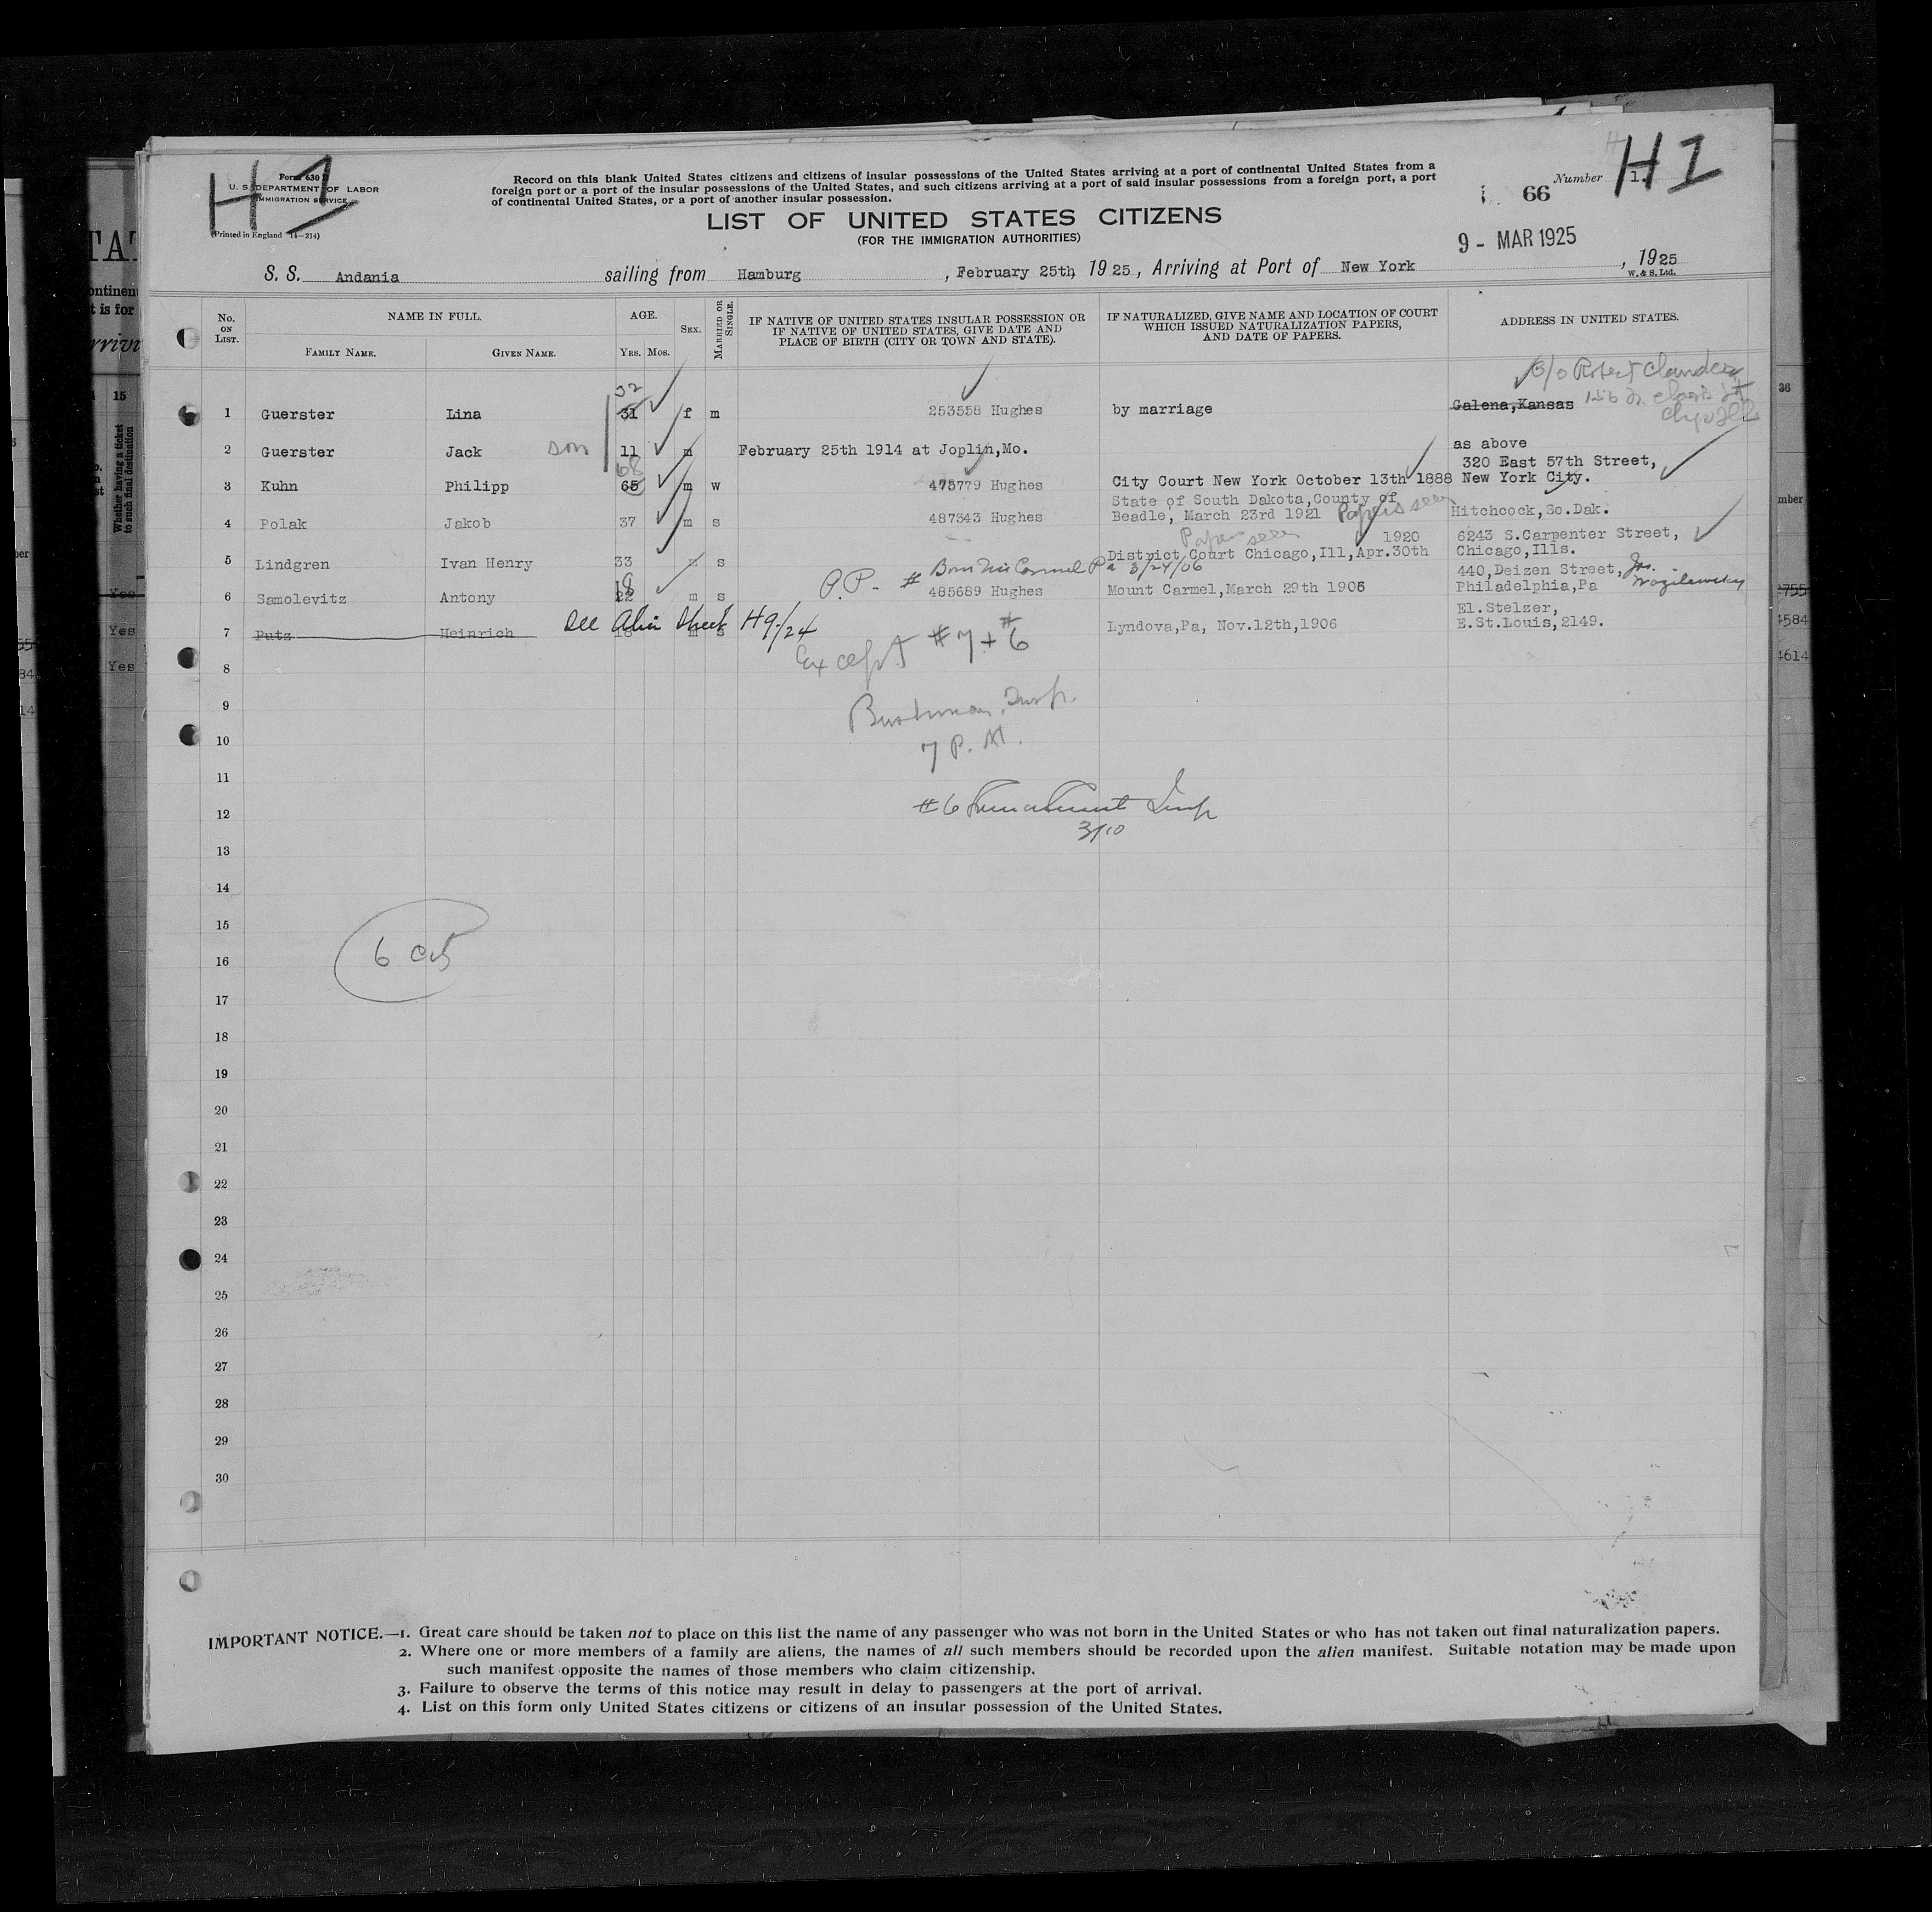 H1
Form 630
U. S. DEPARTMENT OF LABOR
IMMIGRATION SERVICE
(Printed in England 11—214)
Record on this blank United States citizens and citizens of insular possessions of the United States arriving at a port of continental United States from a
foreign port or a port of the insular possessions of the United States, and such citizens arriving at a port of said insular possessions from a foreign port, a port
of continental United States, or a port of another insular possession.
66
Number 1.
H I
LIST OF UNITED STATES CITIZENS
(FOR THE IMMIGRATION AUTHORITIES)
9 - MAR 1925
S. S. Andania sailing from Hamburg, February 25th, 1925, Arriving at Port of New York, 1925
W. & S. Ltd.
No. ON LIST.
NAME IN FULL.
FAMILY NAME.
GIVEN NAME.
AGE.
YRS. MOS.
SEX.
MARRIED OR SINGLE.
IF NATIVE OF UNITED STATES INSULAR POSSESSION OR
IF NATIVE OF UNITED STATES, GIVE DATE AND
PLACE OF BIRTH (CITY OR TOWN AND STATE).
IF NATURALIZED, GIVE NAME AND LOCATION OF COURT
WHICH ISSUED NATURALIZATION PAPERS,
AND DATE OF PAPERS.
ADDRESS IN UNITED STATES.
c/o Robert
32
1 Guerster Lina 31 f m 253558 Hughes by marriage Galena,Kansas
2 Guerster Jack son 11 m February 25th 1914 at Joplin,Mo. as above
68
320 East 57th Street,
3 Kuhn Philipp 65 m w 475779 Hughes City Court New York October 13th 1888 New York City.
State of South Dakota,County of
4 Polak Jakob 37 m s 487543 Hughes Beadle, March 23rd 1921 Papers seen Hitchcock,So.Dak.
Papers seen 1920 6243 S.Carpenter Street,
5 Lindgren Ivan Henry 33 m s District Court Chicago,Ill,Apr.30th Chicago,Ills.
P.P. - # Born Mt Carmel Pa 3/24/06
18
440,Deizen Street, Jos.
6 Samolevitz Antony 22 m s 485689 Hughes Mount Carmel,March 29th 1906 Philadelphia,Pa
El.Stelzer,
7 Putz Heinrich 18 m s Lyndova,Pa, Nov.12th,1906 E.St.Louis,2149.
See Alien Sheet H9/24
Except #7 + #6
Insp.
7 P. M.
#6 Insp
3/10
8
9
10
11
12
13
14
15
6
16
17
18
19
20
21
22
23
24
25
26
27
28
29
30
IMPORTANT NOTICE.—1. Great care should be taken not to place on this list the name of any passenger who was not born in the United States or who has not taken out final naturalization papers.
2. Where one or more members of a family are aliens, the names of all such members should be recorded upon the alien manifest. Suitable notation may be made upon
such manifest opposite the names of those members who claim citizenship.
3. Failure to observe the terms of this notice may result in delay to passengers at the port of arrival.
4. List on this form only United States citizens or citizens of an insular possession of the United States.
15
Whether having a ticket
to such final destination
Yes
Yes
Yes
36
2755
4584
4614